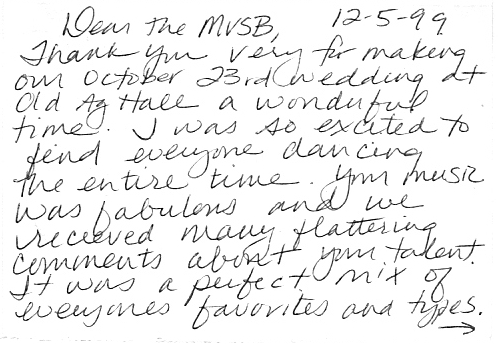 Dear the MVSB, 12-5-99
Thank you very for making
our October 23rd wedding at
Old Ag Hall a wonderful
time. I was so excited to
find everyone dancing
the entire time. Your music
was fabulous and we
received many flattering
comments about your talent.
It was a perfect mix of
everyones favorites and types.
→